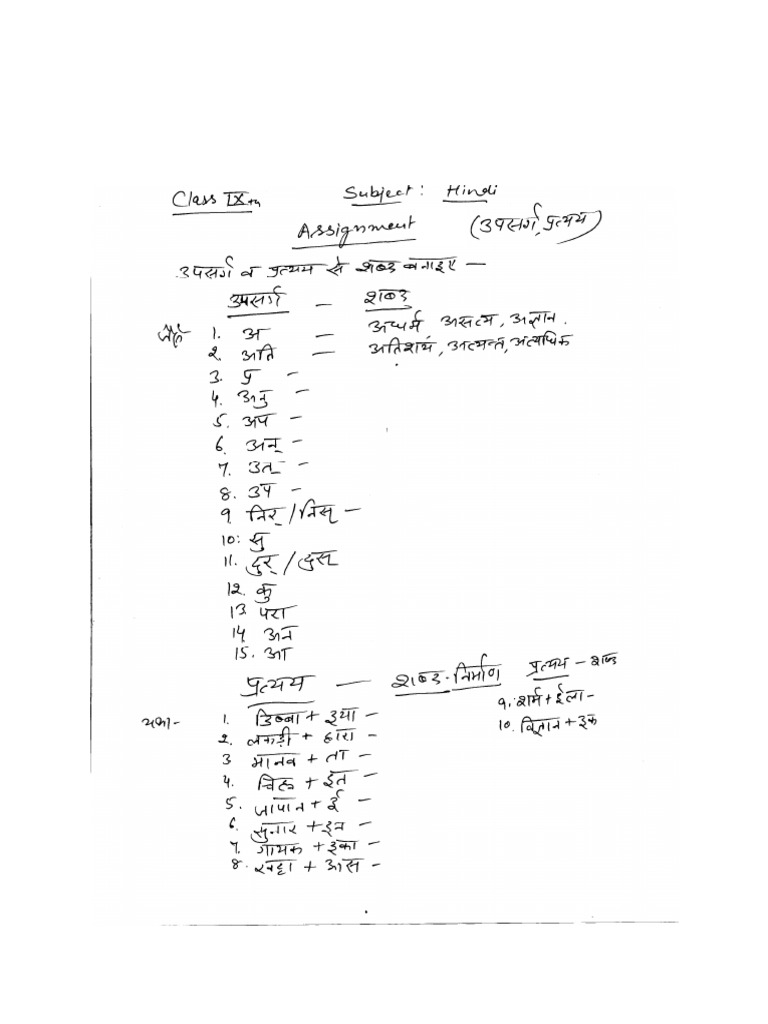 Class IXth Subject: Hindi
Assignment (उपसर्ग, प्रत्यय)
उपसर्ग व प्रत्यय से शब्द बनाइए –
उपसर्ग – शब्द
जैसे 1. अ – अधर्म, असत्य, अज्ञान.
2. अति – अतिशय, अत्यन्त, अत्यधिक
3. प्र –
4. अनु –
5. अप –
6. अन् –
7. उत् –
8. उप –
9 निर् / निस् –
10: सु
11. दुर् / दुस्
12. कु
13 परा
14 अन
15. आ
प्रत्यय – शब्द-निर्माण प्रत्यय – शब्द
यथा- 1. डिब्बा + इया – 9. शर्म + ईला –
2. लकड़ी + हारा – 10. विज्ञान + इक
3 मानव + ता –
4. चिह्न + इत –
5. जापान + ई –
6. सुनार + इन –
7. गायक + इका –
8. खट्टा + आस –